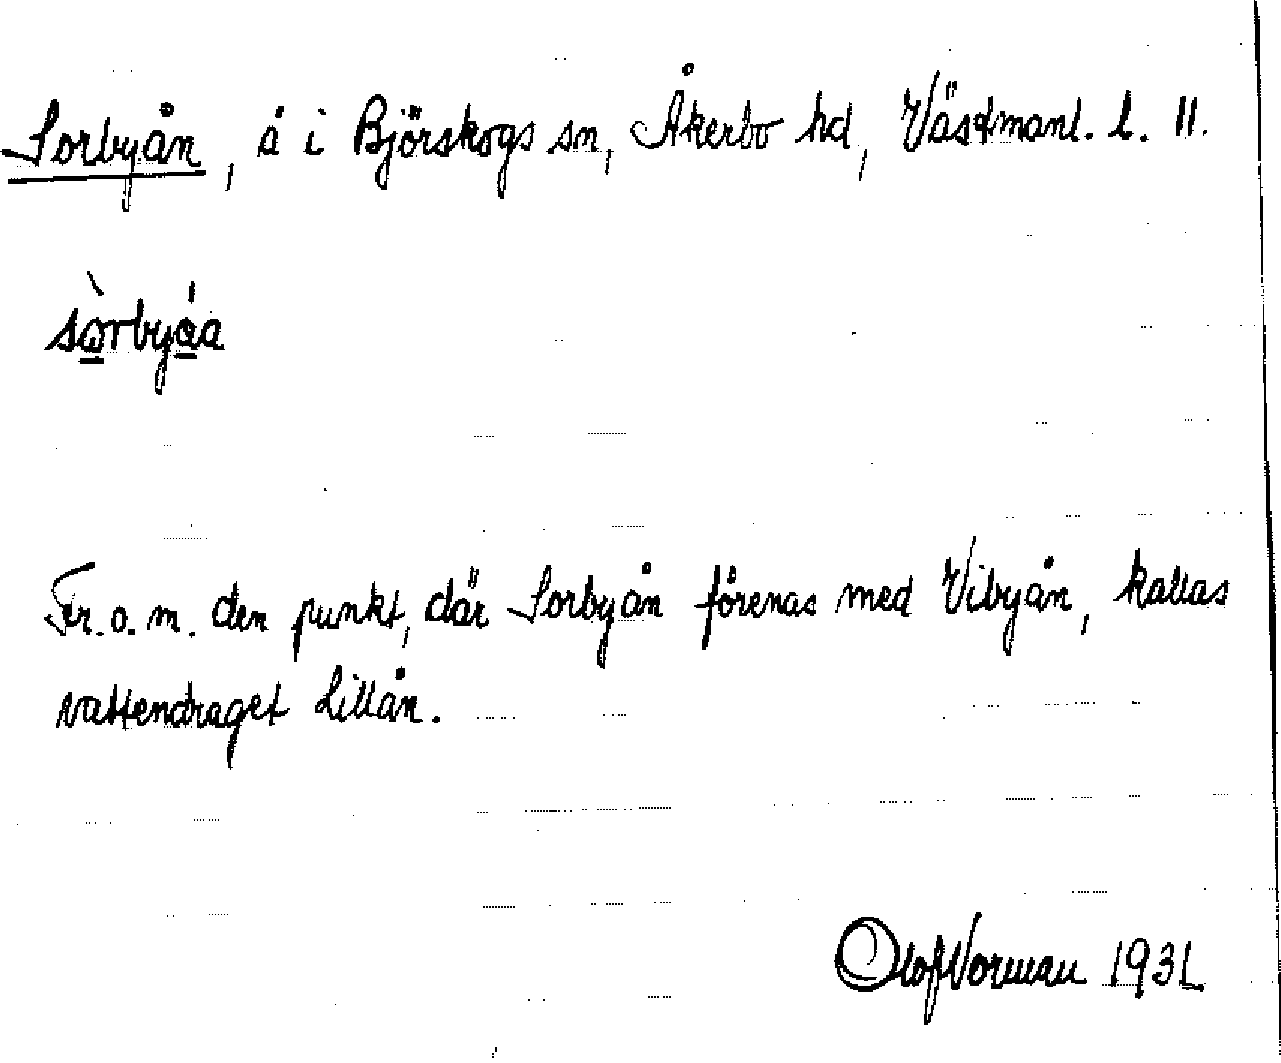 Sorbyån, å i Björskogs sn, Åkerbo hd, Västmanl. l. 11.
sòrbyáa
Fr. o. m. den punkt, där Sorbyån förenas med Vibyån, kallas
vattendraget Lillån.
Olof Vorman 1931